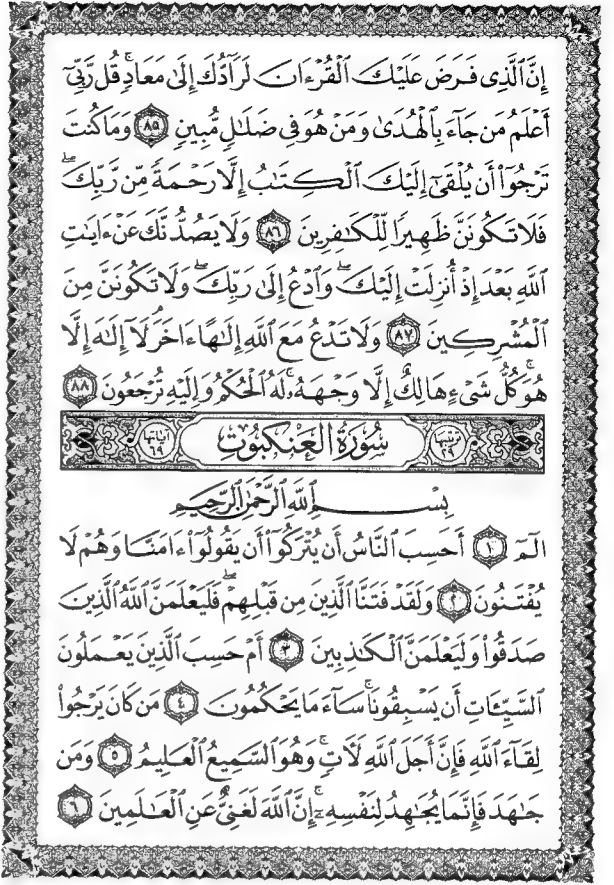 إِنَّ ٱلَّذِى فَرَضَ عَلَيْكَ ٱلْقُرْءَانَ لَرَآدُّكَ إِلَىٰ مَعَادٍ ۚ قُل رَّبِّىٓ
أَعْلَمُ مَن جَآءَ بِٱلْهُدَىٰ وَمَنْ هُوَ فِى ضَلَٰلٍ مُّبِينٍ ٨٥ وَمَا كُنتَ
تَرْجُوٓا۟ أَن يُلْقَىٰٓ إِلَيْكَ ٱلْكِتَٰبُ إِلَّا رَحْمَةً مِّن رَّبِّكَ ۖ
فَلَا تَكُونَنَّ ظَهِيرًا لِّلْكَٰفِرِينَ ٨٦ وَلَا يَصُدُّنَّكَ عَنْ ءَايَٰتِ
ٱللَّهِ بَعْدَ إِذْ أُنزِلَتْ إِلَيْكَ ۖ وَٱدْعُ إِلَىٰ رَبِّكَ ۖ وَلَا تَكُونَنَّ مِنَ
ٱلْمُشْرِكِينَ ٨٧ وَلَا تَدْعُ مَعَ ٱللَّهِ إِلَٰهًا ءَاخَرَ ۘ لَآ إِلَٰهَ إِلَّا
هُوَ ۚ كُلُّ شَىْءٍ هَالِكٌ إِلَّا وَجْهَهُۥ ۚ لَهُ ٱلْحُكْمُ وَإِلَيْهِ تُرْجَعُونَ ٨٨
ترتيبها ٢٩ سُورَةُ العَنكبُوت آياتها ٦٩
بِسْمِ ٱللَّهِ ٱلرَّحْمَٰنِ ٱلرَّحِيمِ
الٓمٓ ١ أَحَسِبَ ٱلنَّاسُ أَن يُتْرَكُوٓا۟ أَن يَقُولُوٓا۟ ءَامَنَّا وَهُمْ لَا
يُفْتَنُونَ ٢ وَلَقَدْ فَتَنَّا ٱلَّذِينَ مِن قَبْلِهِمْ ۖ فَلَيَعْلَمَنَّ ٱللَّهُ ٱلَّذِينَ
صَدَقُوا۟ وَلَيَعْلَمَنَّ ٱلْكَٰذِبِينَ ٣ أَمْ حَسِبَ ٱلَّذِينَ يَعْمَلُونَ
ٱلسَّيِّـَٔاتِ أَن يَسْبِقُونَا ۚ سَآءَ مَا يَحْكُمُونَ ٤ مَن كَانَ يَرْجُوا۟
لِقَآءَ ٱللَّهِ فَإِنَّ أَجَلَ ٱللَّهِ لَـَٔاتٍ ۚ وَهُوَ ٱلسَّمِيعُ ٱلْعَلِيمُ ٥ وَمَن
جَٰهَدَ فَإِنَّمَا يُجَٰهِدُ لِنَفْسِهِۦٓ ۚ إِنَّ ٱللَّهَ لَغَنِىٌّ عَنِ ٱلْعَٰلَمِينَ ٦